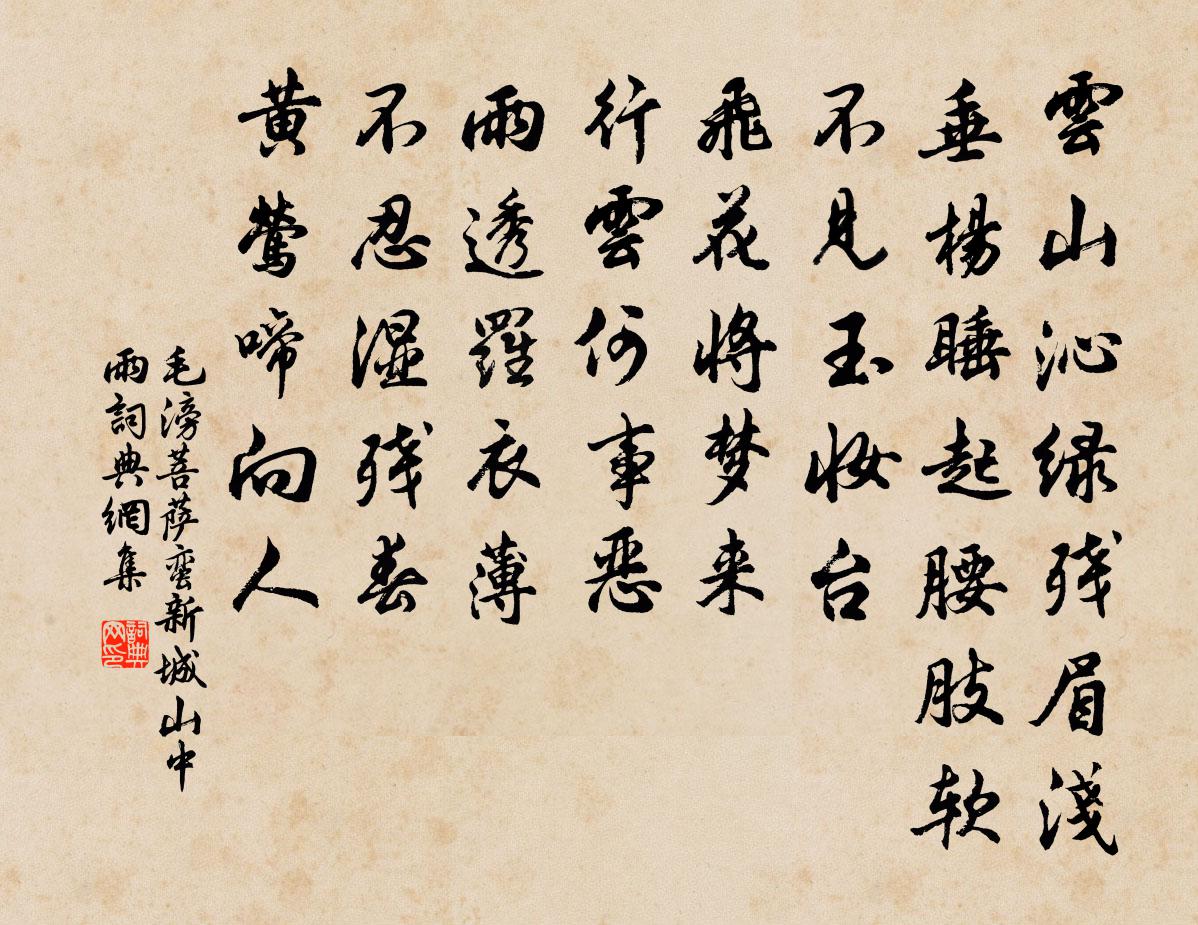 雲山沁緑残眉淺
垂楊睡起腰肢软
不見玉妝台
飛花将梦来
行雲何事惡
雨透羅衣薄
不忍濕残春
黄鶯啼向人
毛滂菩萨蛮新城山中
雨詞典網集
詞典網印